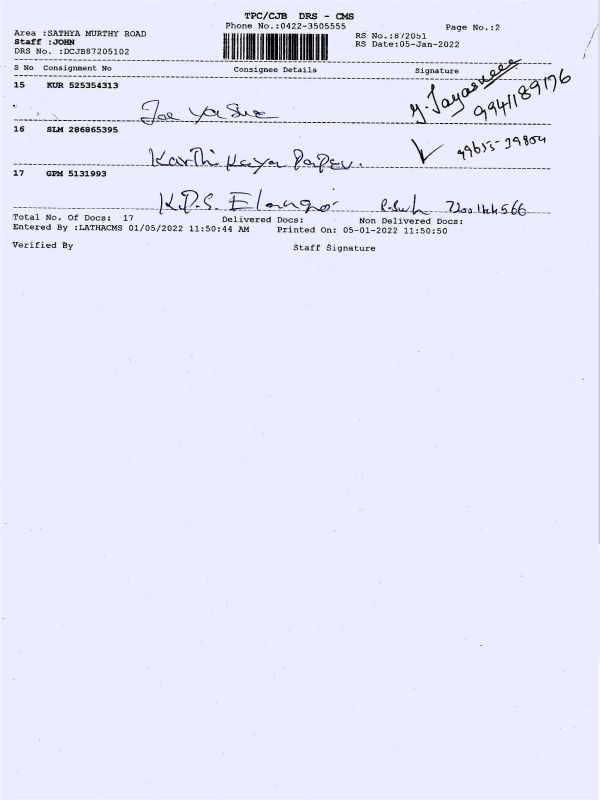 TPC/CJB DRS - CMS
Phone No.:0422-3505555 Page No.:2
Area :SATHYA MURTHY ROAD RS No.:872051
Staff :JOHN RS Date:05-Jan-2022
DRS No. :DCJB87205102
S No Consignment No Consignee Details Signature
15 KUR 525354313
9941189176
16 SLM 286865395
Karthikeya Paper. 99655-39804
17 GPM 5131993
K.P.S. Elango
Total No. Of Docs: 17 Delivered Docs: Non Delivered Docs:
Entered By :LATHACMS 01/05/2022 11:50:44 AM Printed On: 05-01-2022 11:50:50
Verified By Staff Signature